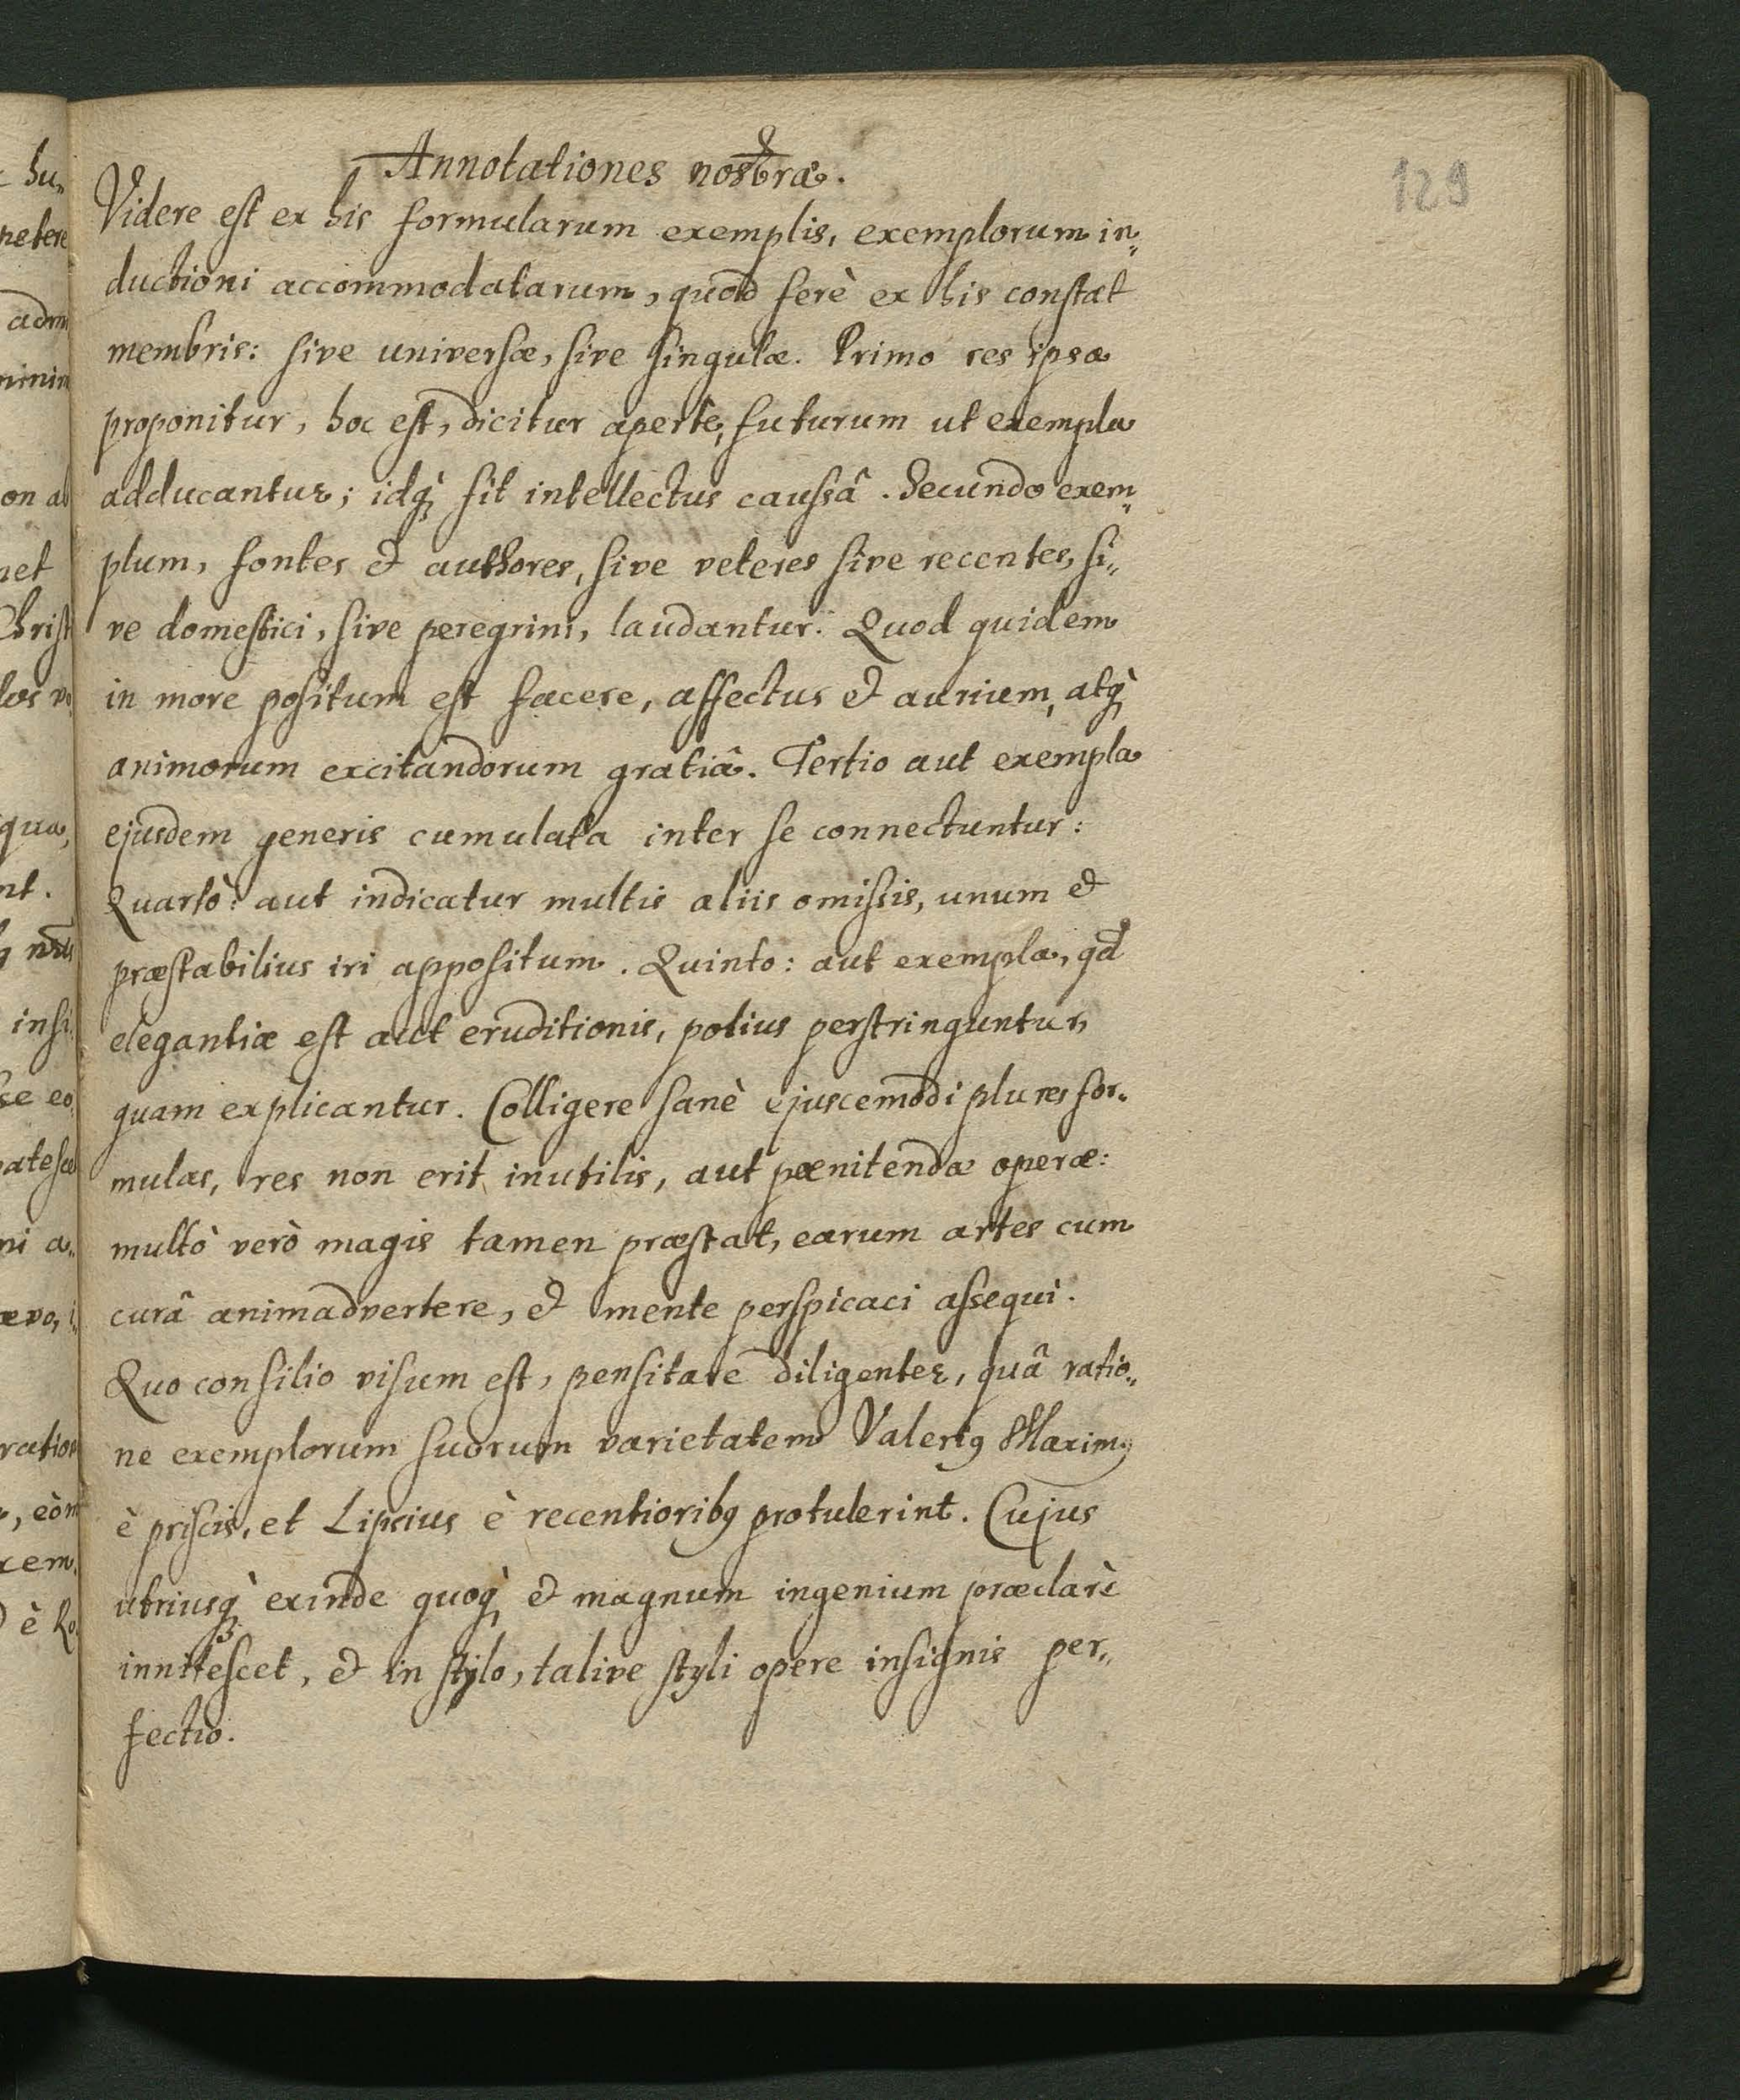 Annotationes nostræ.
129
Videre est ex his formularum exemplis, exemplorum in„
ductioni accommodatarum, quod ferè ex his constat
membris: sive universæ, sive singulæ. Primo res ipsa
proponitur, hoc est, dicitur aperte, futurum ut exempla
adducantur; idq; fit intellectus caussâ. Secundo exem„
plum, fontes & authores, sive veteres sive recentes, si„
ve domestici, sive peregrini, laudantur. Quod quidem
in more positum est facere, affectus & aurium, atq;
animorum excitandorum gratiâ. Tertio aut exempla
ejusdem generis cumulata inter se connectuntur:
Quartò: aut indicatur multis aliis omissis, unum &
præstabilius iri appositum. Quinto: aut exempla, qd
elegantiæ est aut eruditionis, potius perstringuntur,
quam explicantur. Colligere sanè ejuscemodi plures for„
mulas, res non erit inutilis, aut pœnitendæ operæ:
multò verò magis tamen præstat, earum artes cum
curâ animadvertere, & mente perspicaci assequi.
Quo consilio visum est, pensitare diligenter, quâ ratio„
ne exemplorum suorum varietatem Valerig Maxim9
è priscis, et Lipsius è recentiorib9 protulerint. Cujus
utriusq; exinde quoq; & magnum ingenium præclarè
innitescet, & in stylo, talive styli opere insignis per„
fectio.
hu„
adm
on a
net
Christ
qua,
nt.
insi
se eo
ni a„
ævo, i„
ratio
rem
è Ro